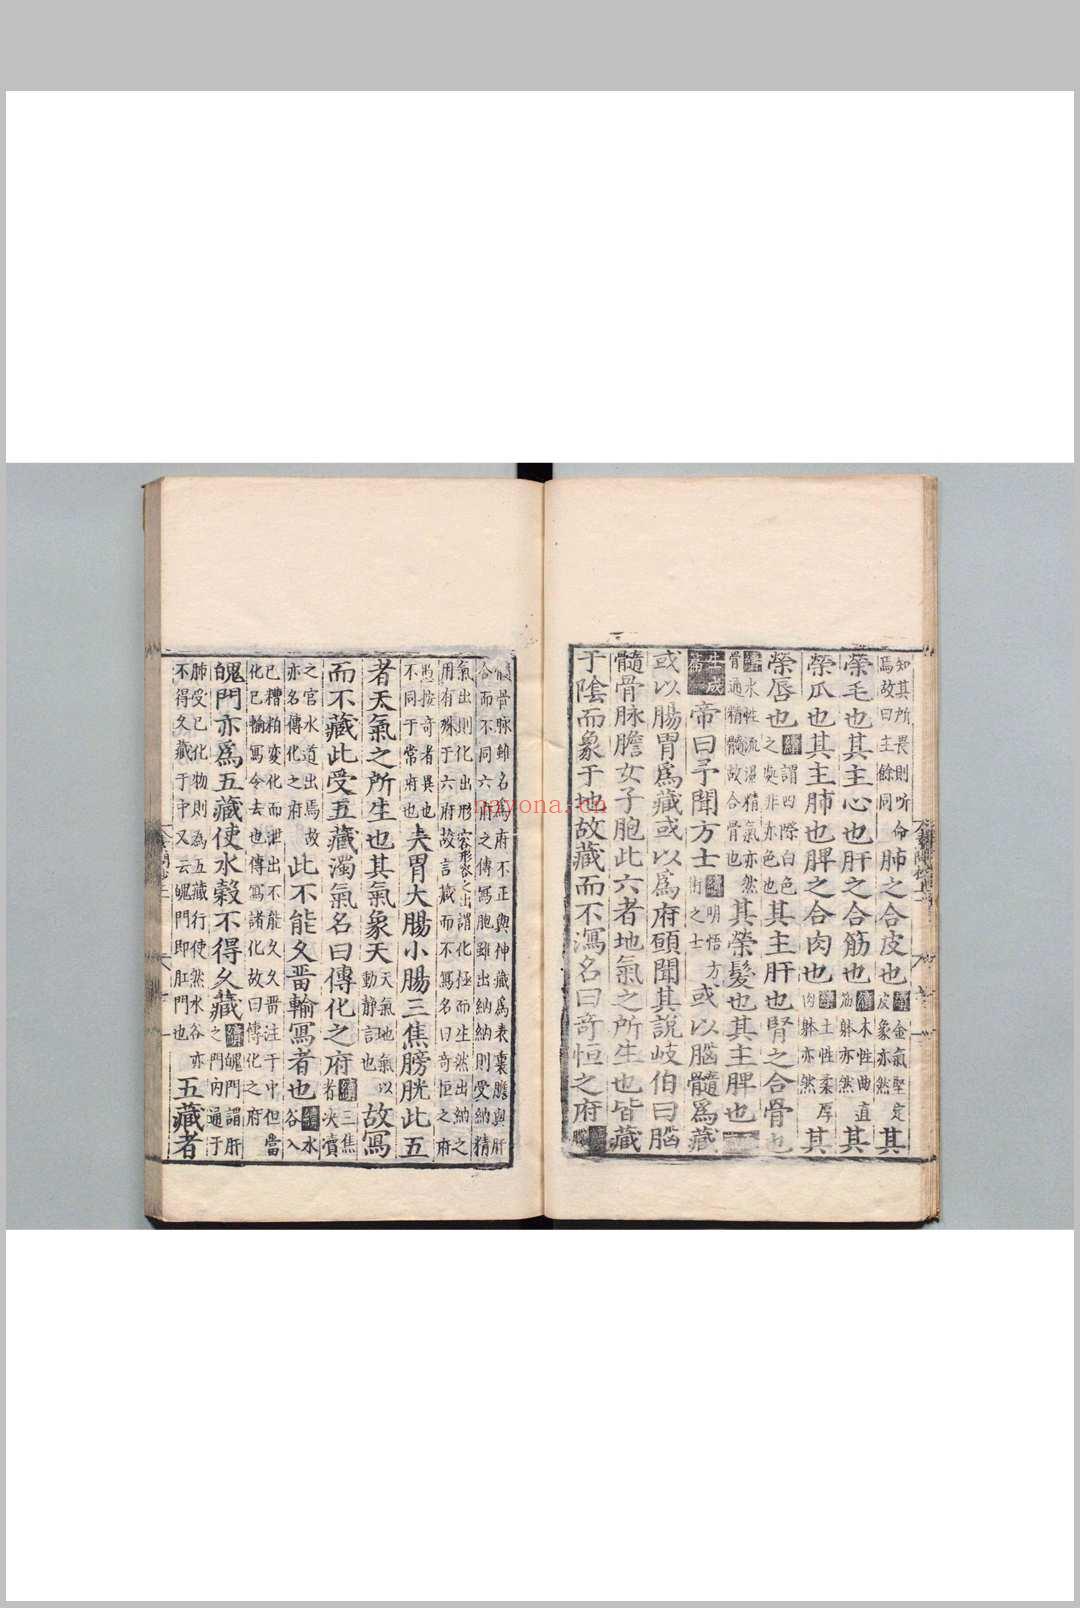 知其所畏則听命
焉故曰主餘同
肺之合皮也
金氣堅定
皮象亦然
其
榮毛也其主心也肝之合筋也
木性曲直
筋躰亦然
其
榮爪也其主肺也脾之合肉也
土性柔厚
肉躰亦然
其
榮唇也
謂四際白色
之處非赤色也
其主肝也腎之合骨也
水性流濕精氣亦然
骨通精髓故合骨也
其榮髮也其主脾也
五藏
帝曰予聞方士
明悟方
術之士
或以腦髓爲藏
或以腸胃爲藏或以爲府願聞其說岐伯曰腦
髓骨脉膽女子胞此六者地氣之所生也皆藏
于陰而象于地故藏而不瀉名曰奇恒之府
髓骨脉雖名爲府不正與神藏爲表裏膽與肝
合而不同六府之傳寫胞雖出納納則受納精
氣出則化出形容形容之出謂化極而生然出納之
用有殊于六府故言藏而不寫名曰奇恒之府
愚按奇者異也
不同于常府也
夫胃大腸小腸三焦膀胱此五
者天氣之所生也其氣象天
天氣地氣以
動靜言也
故寫
而不藏此受五藏濁氣名曰傳化之府
三焦
者決瀆
之官水道出焉故
亦名傳化之府
此不能久畱輸寫者也
水
谷入
已糟粕变化而泄出不能久久畱注于中但當
化已輸寫令去也傳寫諸化故曰傳化之府
魄門亦爲五藏使水穀不得久藏
魄門謂肝
之門內通于
肺受已化物則為五藏行使然水谷亦
不得久藏于中又云魄門即肛門也
五藏者